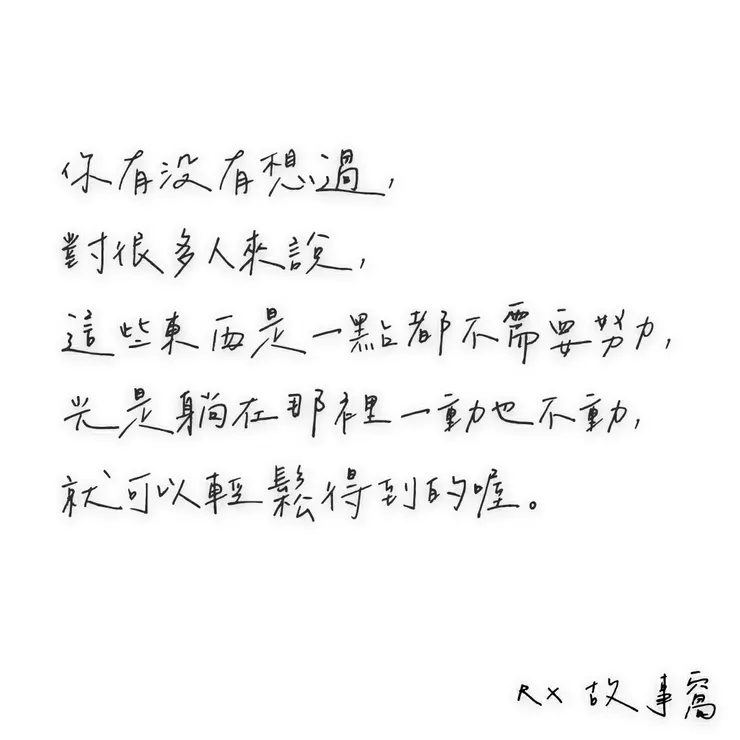 你有没有想過,
對很多人來說,
這些東西是一點都不需要努力,
光是躺在那裡一動也不動,
就可以輕鬆得到的喔。
RX 故事窩